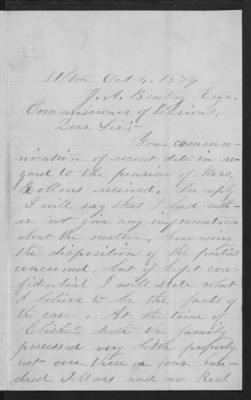 Alton Oct 4, 1879
J. A. Bentley Esqr.
Commissioner of Pensions,
Dear Sir:-
Your commu-
nication of recent date in re-
gard to the pension of Mrs.
Collins received. In reply
I will say that I had rath-
er not give any information
about the matter, knowing
the disposition of the parties
concerned, but if kept con-
fidential I will state what
I believe to be the facts of
the case. At the time of
death the family
possessed very little property
not over three or four hun-
dred dollars and no Real